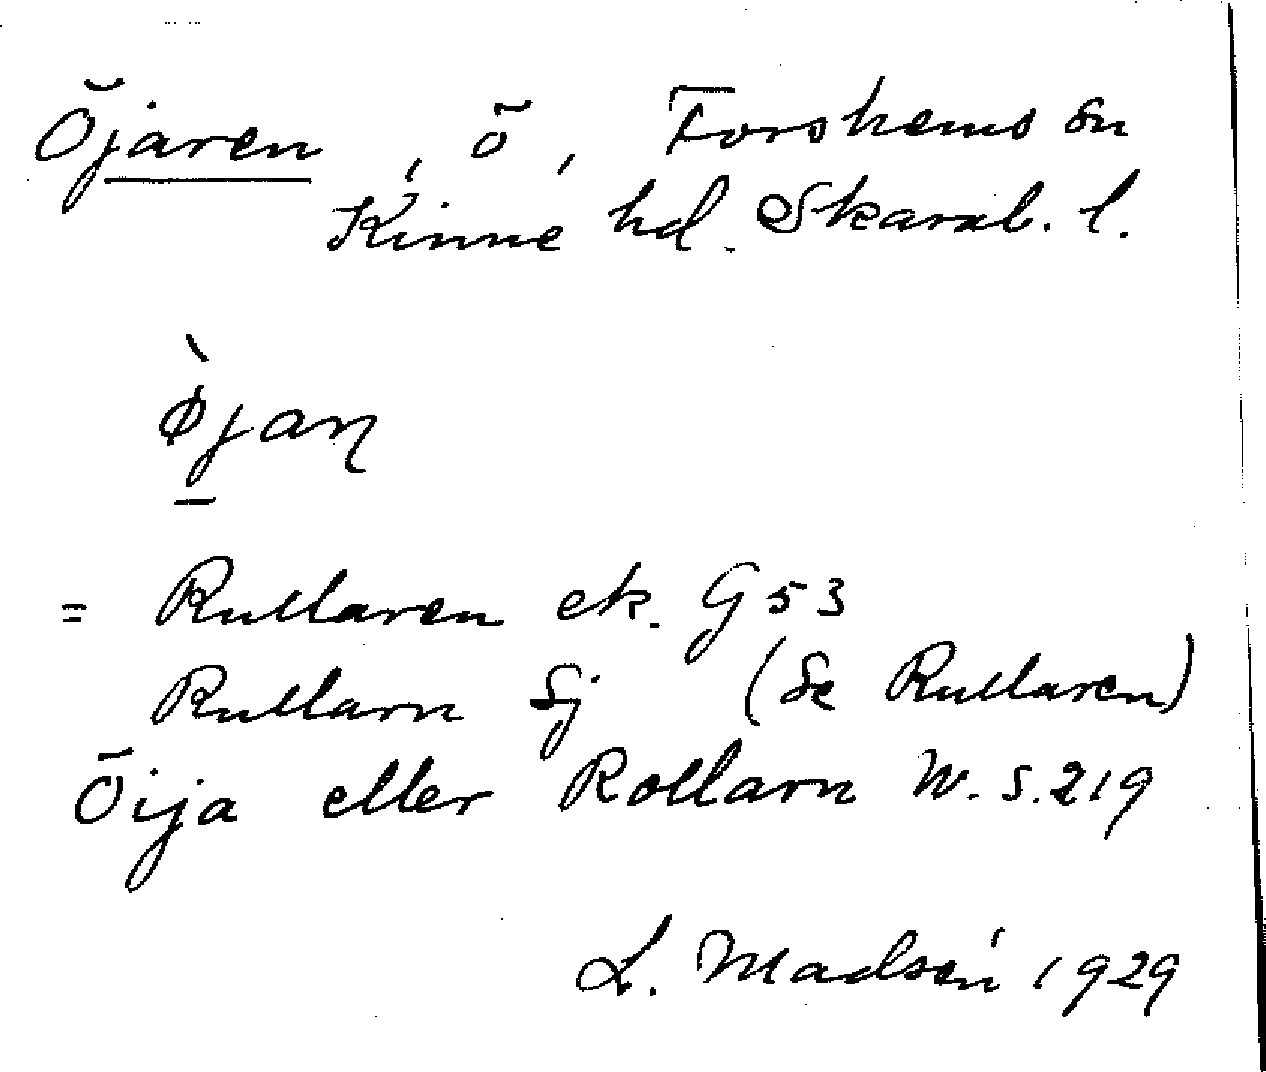 Öjaren, ö, Forshems sn
Kinne hd. Skarab. l.
ø̀jaɳ
= Rullaren ek. G 53
Rullarn Sj (Se Rullaren)
Öija eller Rollarn W. S. 219
L. Madsén 1929